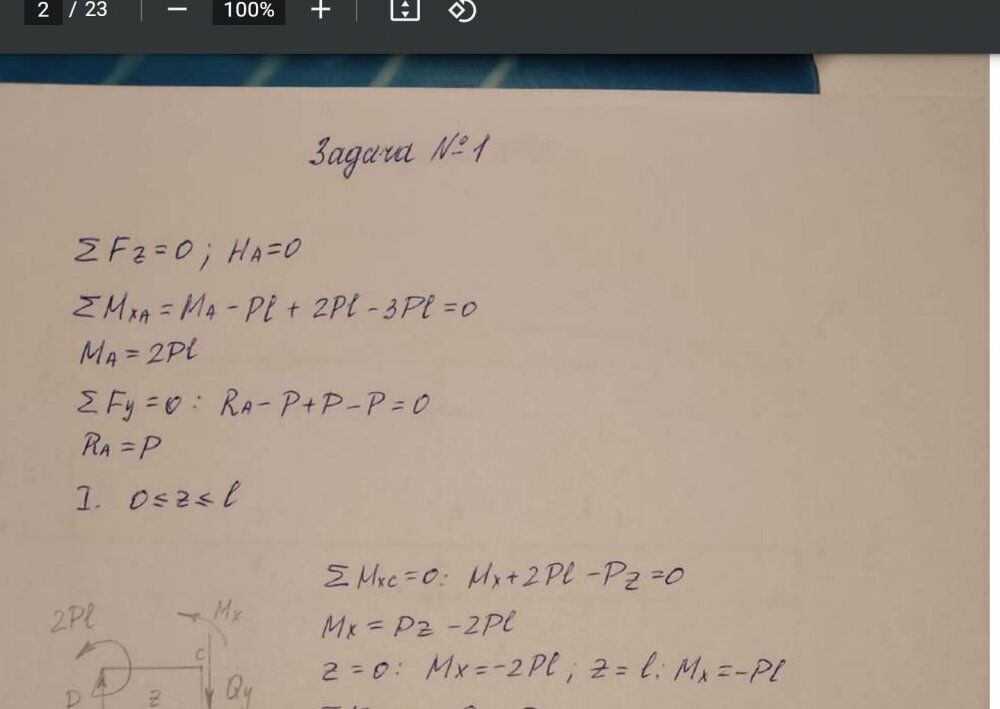 2 / 23 — 100% +
Задача №1
ΣFz=0; HA=0
ΣMxA=MA-Pl+2Pl-3Pl=0
MA=2Pl
ΣFy=0: RA-P+P-P=0
RA=P
I. 0≤z≤l
ΣMxc=0: Mx+2Pl-Pz=0
Mx=Pz-2Pl
z=0: Mx=-2Pl; z=l: Mx=-Pl
2Pl Mx
c
P z Qy